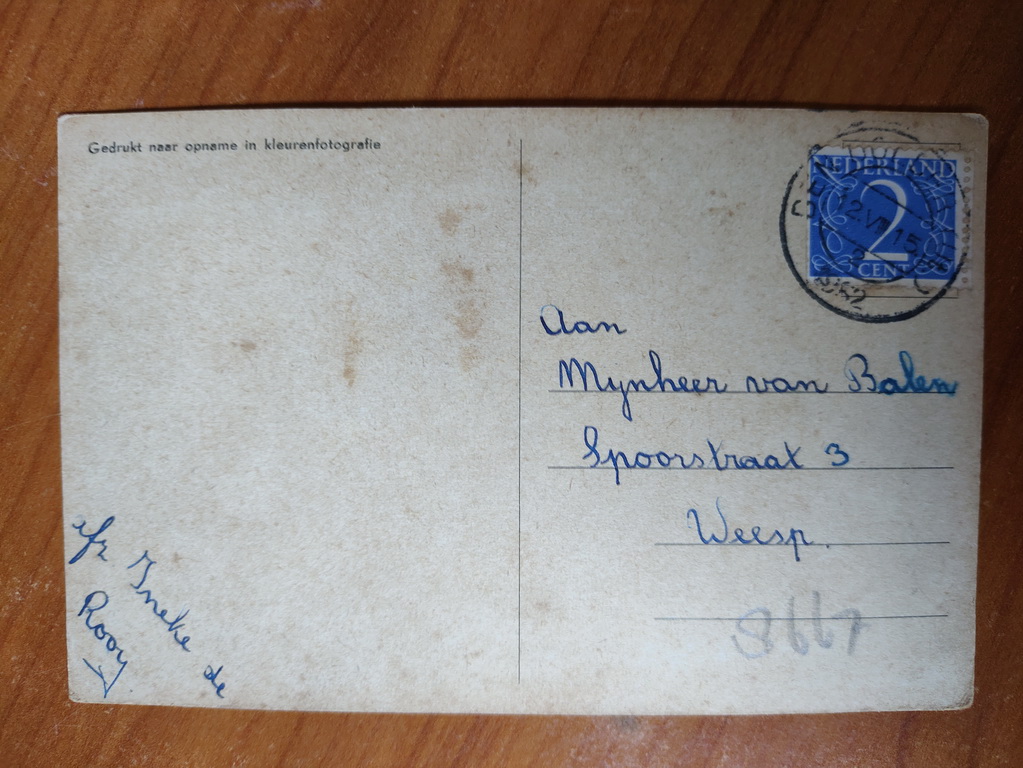 Gedrukt naar opname in kleurenfotografie
NEDERLAND
2
CENT
Aan
Mynheer van Balen
Spoorstraat 3
Weesp.
afz Ineke de
Rooy